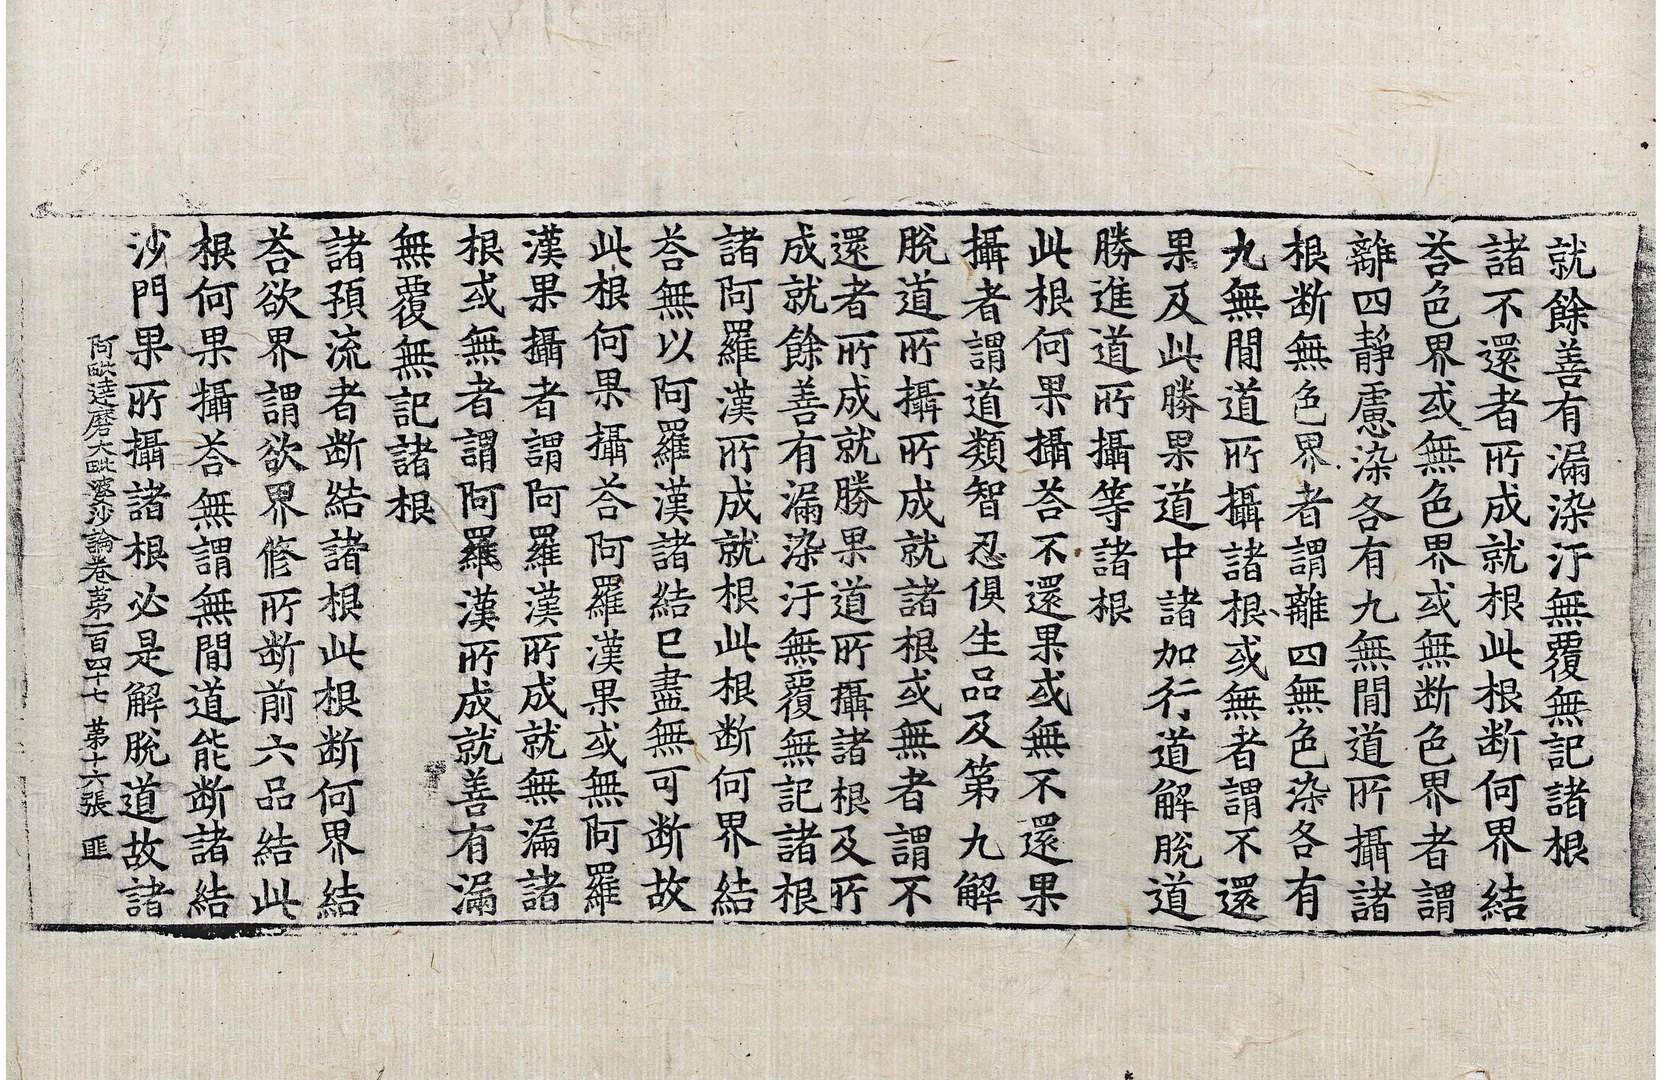 就餘善有漏染汙無覆無記諸根
諸不還者所成就根此根断何界結
荅色界或無色界或無断色界者謂
離四靜慮染各有九無間道所攝諸
根断無色界者謂離四無色染各有
九無間道所攝諸根或無者謂不還
果及此勝果道中諸加行道解脫道
勝進道所攝等諸根
此根何果攝荅不還果或無不還果
攝者謂道類智忍俱生品及第九解
脫道所攝所成就諸根或無者謂不
還者所成就勝果道所攝諸根及所
成就餘善有漏染汙無覆無記諸根
諸阿羅漢所成就根此根断何界結
荅無以阿羅漢諸結已盡無可断故
此根何果攝荅阿羅漢果或無阿羅
漢果攝者謂阿羅漢所成就無漏諸
根或無者謂阿羅漢所成就善有漏
無覆無記諸根
諸預流者断結諸根此根断何界結
荅欲界謂欲界修所断前六品結此
根何果攝荅無謂無間道能断諸結
沙門果所攝諸根必是解脫道故諸
阿毗達磨大毗婆沙論卷第一百四十七 第十六張 匪